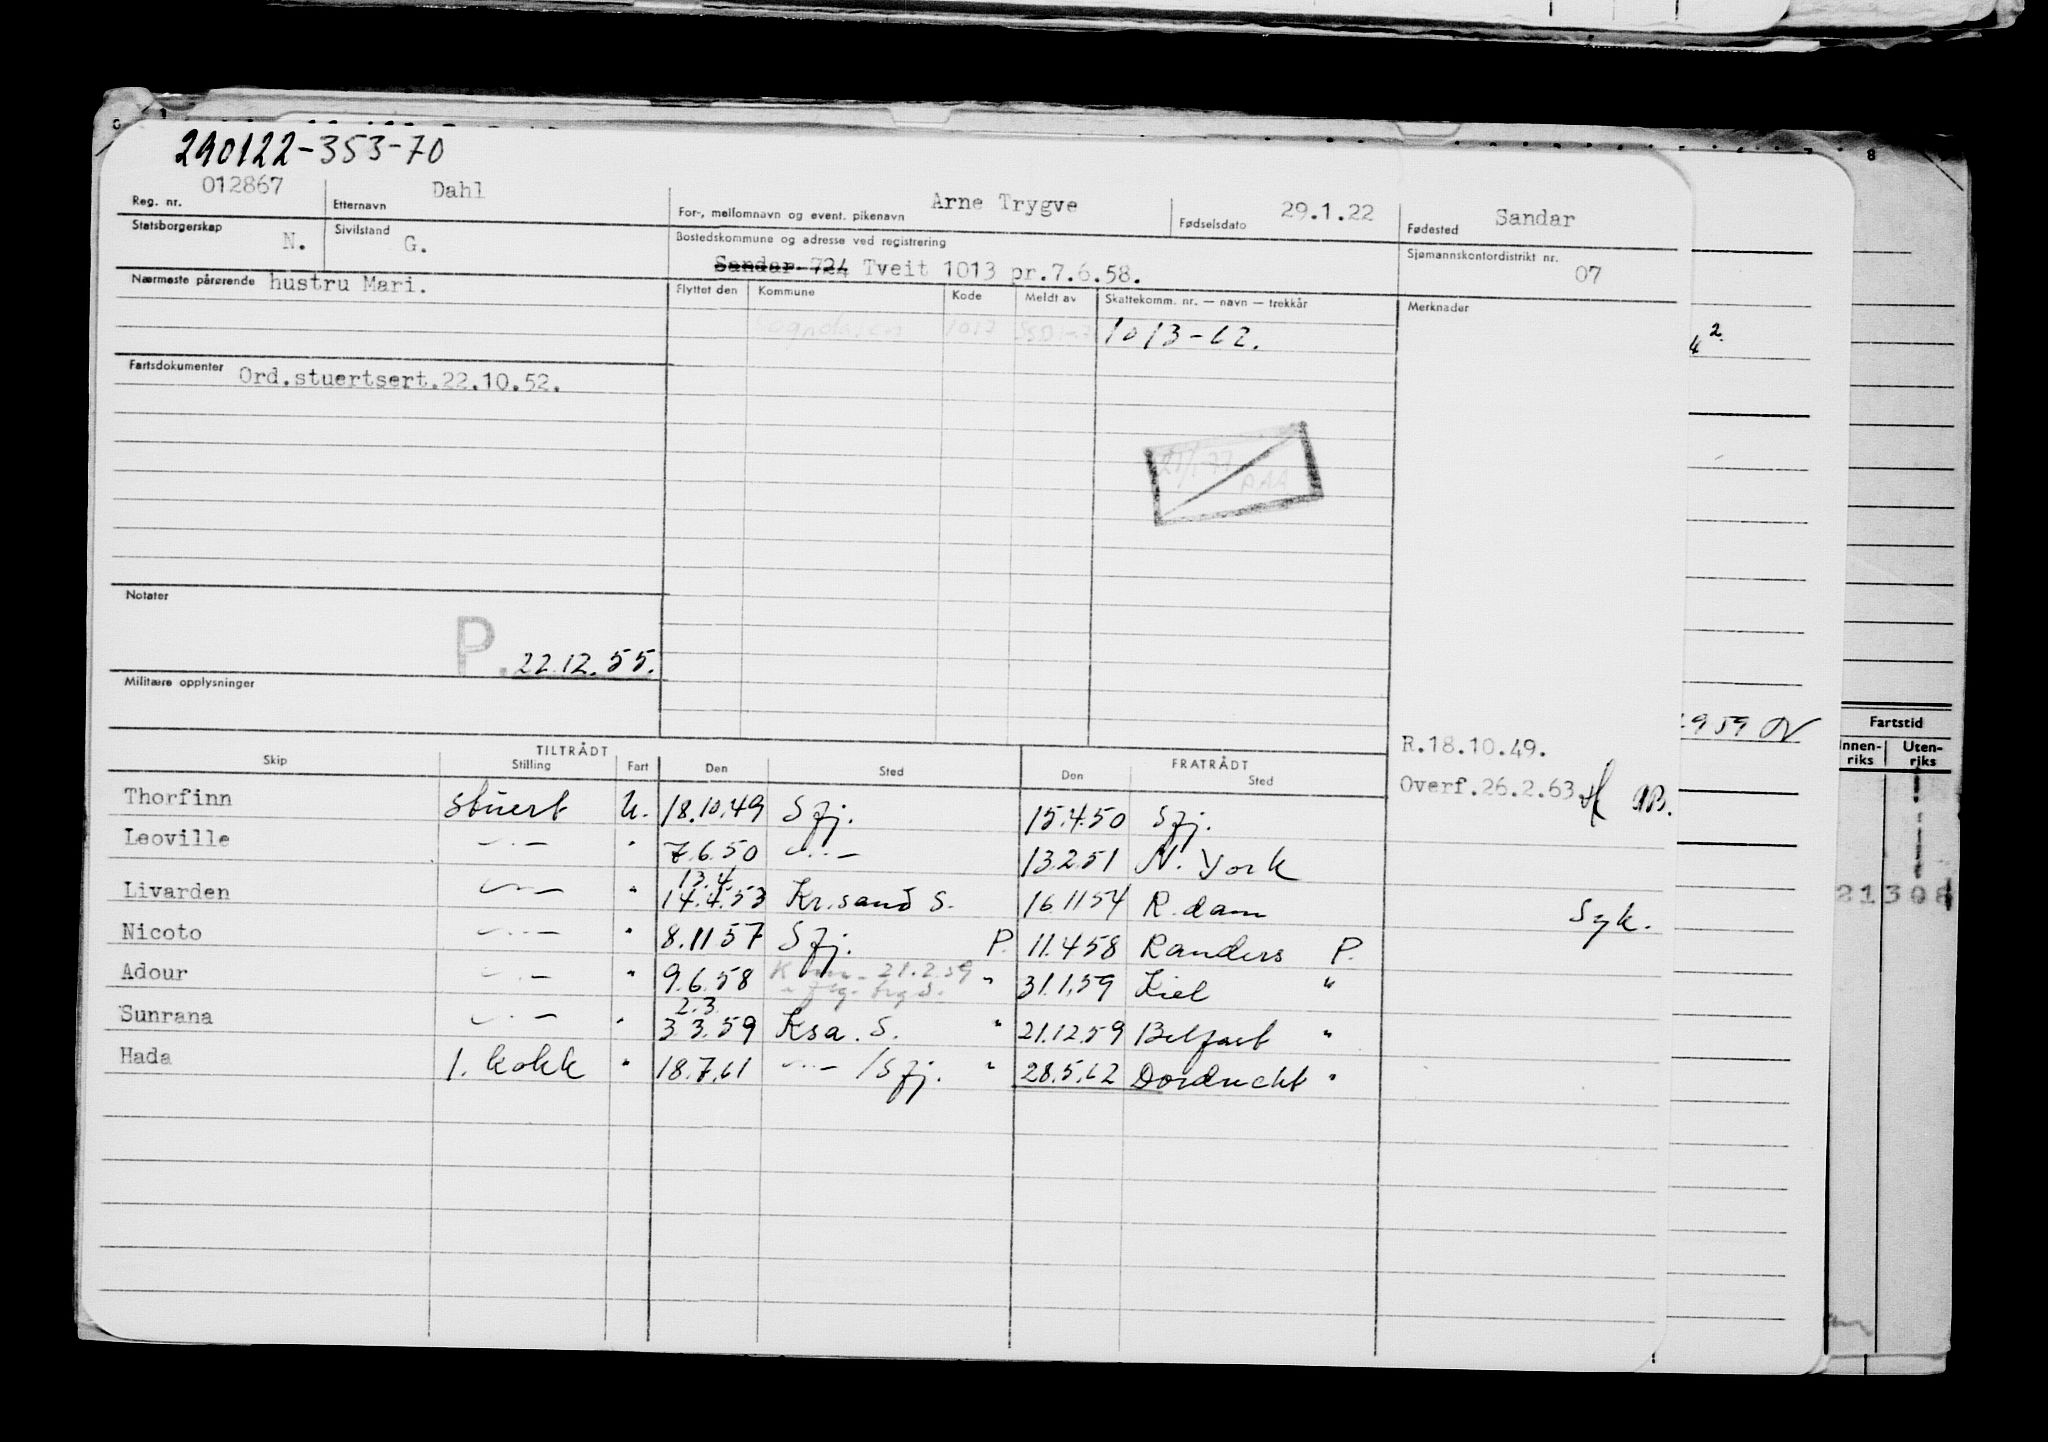 290122-353-70
Reg. nr. 012867 Etternavn Dahl For-, mellomnavn og event. pikenavn Arne Trygve Fødselsdato 29.1.22 Fødested Sandar
Statsborgerskap N. Sivilstand G. Bostedskommune og adresse ved registrering Sjømannskontordistrikt nr. 07
Sandar 724 Tveit 1013 pr.7.6.58.
Nærmeste pårørende hustru Mari. Flyttet den Kommune Kode Meldt av Skattekomm. nr. — navn — trekkår Merknader
1017 1013-62.
Fartsdokumenter Ord.stuertsert.22.10.52.
Notater
P. 22.12.55.
Militære opplysninger
R.18.10.49.
Overf.26.2.63
TILTRÅDT FRATRÅDT
Skip Stilling Fart Den Sted Den Sted
Thorfinn Stuert U. 18.10.49 Sfj. 15.4.50 Sfj.
Leoville —"— " 7.6.50 —"— 13.2.51 N. York
13.4.
Livarden —"— " 14.4.53 Kr.sand S. 16.11.54 R.dam Syk.
Nicoto —"— " 8.11.57 Sfj. P. 11.4.58 Randers P.
Adour —"— " 9.6.58 21.2.59 " 31.1.59 Kiel "
2.3.
Sunrana —"— " 3.3.59 Ksa. S. " 21.12.59 Belfast "
Hada 1. kokk " 18.7.61 —"— /Sfj. " 28.5.62 Dordrecht "
8
4 2.
1959
Fartstid
Innen-riks Uten-riks
21306